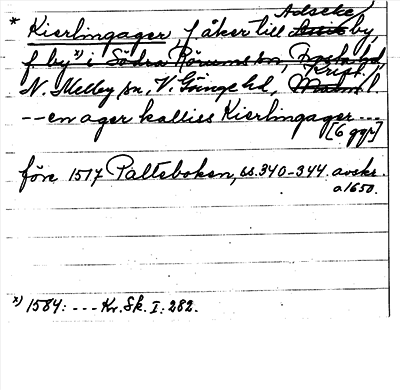 Adseke
* Kierlingager, f åker till by,
f. by x) i Södra Rörums sn, Frosta hd,
Krist.
N. Melby sn, V. Göinge hd, Malm l.
-- en ager kalliss Kierlingager ---
[6 ggr]
före 1517 Palteboken, ss. 340-344 avskr.
a 1650.
x) 1584: --- Kr. Sk. I: 282.